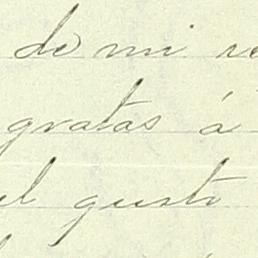 de mi re
gratas á
el gusto